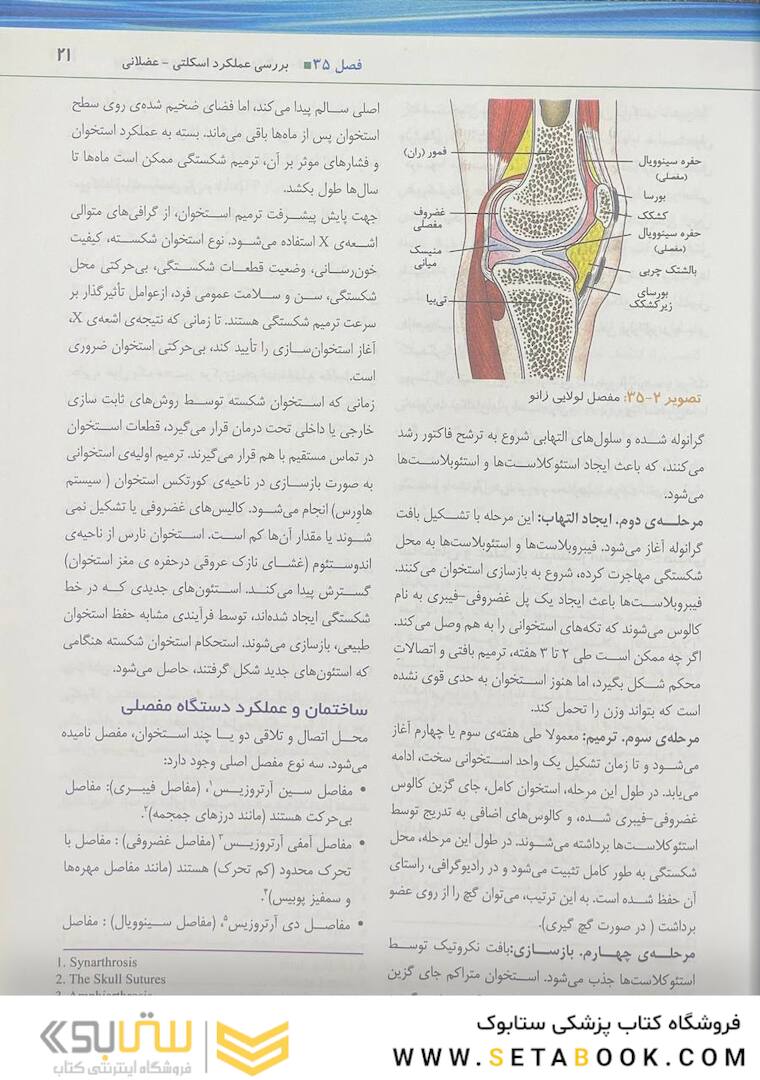 فصل ۳۵ ■ بررسی عملکرد اسکلتی - عضلانی
۲۱
فمور (ران)
غضروف
مفصلی
منیسک
میانی
تی‌بیا
حفره سینوویال
(مفصلی)
بورسا
کشکک
حفره سینوویال
(مفصلی)
بالشتک چربی
بورسای
زیرکشکک
تصویر ۲-۳۵: مفصل لولایی زانو
گرانوله شده و سلول‌های التهابی شروع به ترشح فاکتور رشد
می‌کنند، که باعث ایجاد استئوکلاست‌ها و استئوبلاست‌ها
می‌شود.
مرحله‌ی دوم. ایجاد التهاب: این مرحله با تشکیل بافت
گرانوله آغاز می‌شود. فیبروبلاست‌ها و استئوبلاست‌ها به محل
شکستگی مهاجرت کرده، شروع به بازسازی استخوان می‌کنند.
فیبروبلاست‌ها باعث ایجاد یک پل غضروفی-فیبری به نام
کالوس می‌شوند که تکه‌های استخوانی را به هم وصل می‌کند.
اگر چه ممکن است طی ۲ تا ۳ هفته، ترمیم بافتی و اتصالاتِ
محکم شکل بگیرد، اما هنوز استخوان به حدی قوی نشده
است که بتواند وزن را تحمل کند.
مرحله‌ی سوم. ترمیم: معمولا طی هفته‌ی سوم یا چهارم آغاز
می‌شود و تا زمان تشکیل یک واحد استخوانی سخت، ادامه
می‌یابد. در طول این مرحله، استخوان کامل، جای گزین کالوس
غضروفی-فیبری شده، و کالوس‌های اضافی به تدریج توسط
استئوکلاست‌ها برداشته می‌شوند. در طول این مرحله، محل
شکستگی به طور کامل تثبیت می‌شود و در رادیوگرافی، راستای
آن حفظ شده است. به این ترتیب، می‌توان گچ را از روی عضو
برداشت ( در صورت گچ گیری).
مرحله‌ی چهارم. بازسازی: بافت نکروتیک توسط
استئوکلاست‌ها جذب می‌شود. استخوان متراکم جای گزین
اصلی سالم پیدا می‌کند، اما فضای ضخیم شده‌ی روی سطح
استخوان پس از ماه‌ها باقی می‌ماند. بسته به عملکرد استخوان
و فشارهای موثر بر آن، ترمیم شکستگی ممکن است ماه‌ها تا
سال‌ها طول بکشد.
جهت پایش پیشرفت ترمیم استخوان، از گرافی‌های متوالی
اشعه‌ی X استفاده می‌شود. نوع استخوان شکسته، کیفیت
خون‌رسانی، وضعیت قطعات شکستگی، بی‌حرکتی محل
شکستگی، سن و سلامت عمومی فرد، ازعوامل تأثیرگذار بر
سرعت ترمیم شکستگی هستند. تا زمانی که نتیجه‌ی اشعه‌ی X،
آغاز استخوان‌سازی را تأیید کند، بی‌حرکتی استخوان ضروری
است.
زمانی که استخوان شکسته توسط روش‌های ثابت سازی
خارجی یا داخلی تحت درمان قرار می‌گیرد، قطعات استخوان
در تماس مستقیم با هم قرار می‌گیرند. ترمیم اولیه‌ی استخوانی
به صورت بازسازی در ناحیه‌ی کورتکس استخوان ( سیستم
هاورس) انجام می‌شود. کالیس‌های غضروفی یا تشکیل نمی
شوند یا مقدار آن‌ها کم است. استخوان نارس از ناحیه‌ی
اندوستئوم (غشای نازک عروقی درحفره ی مغز استخوان)
گسترش پیدا می‌کند. استئون‌های جدیدی که در خط
شکستگی ایجاد شده‌اند، توسط فرآیندی مشابه حفظ استخوان
طبیعی، بازسازی می‌شوند. استحکام استخوان شکسته هنگامی
که استئون‌های جدید شکل گرفتند، حاصل می‌شود.
ساختمان و عملکرد دستگاه مفصلی
محل اتصال و تلاقی دو یا چند استخوان، مفصل نامیده
می‌شود. سه نوع مفصل اصلی وجود دارد:
• مفاصل سین آرتروزیس۱، (مفاصل فیبری): مفاصل
بی‌حرکت هستند (مانند درزهای جمجمه)۲.
• مفاصل آمفی آرتروزیس۳ (مفاصل غضروفی) : مفاصل با
تحرک محدود (کم تحرک) هستند (مانند مفاصل مهره‌ها
و سمفیز پوبیس)۴.
• مفاصل دی آرتروزیس۵، (مفاصل سینوویال) : مفاصل
1. Synarthrosis
2. The Skull Sutures
3. Amphiarthrosis
ستابوک
فروشگاه اینترنتی کتاب
فروشگاه کتاب پزشکی ستابوک
WWW.SETABOOK.COM